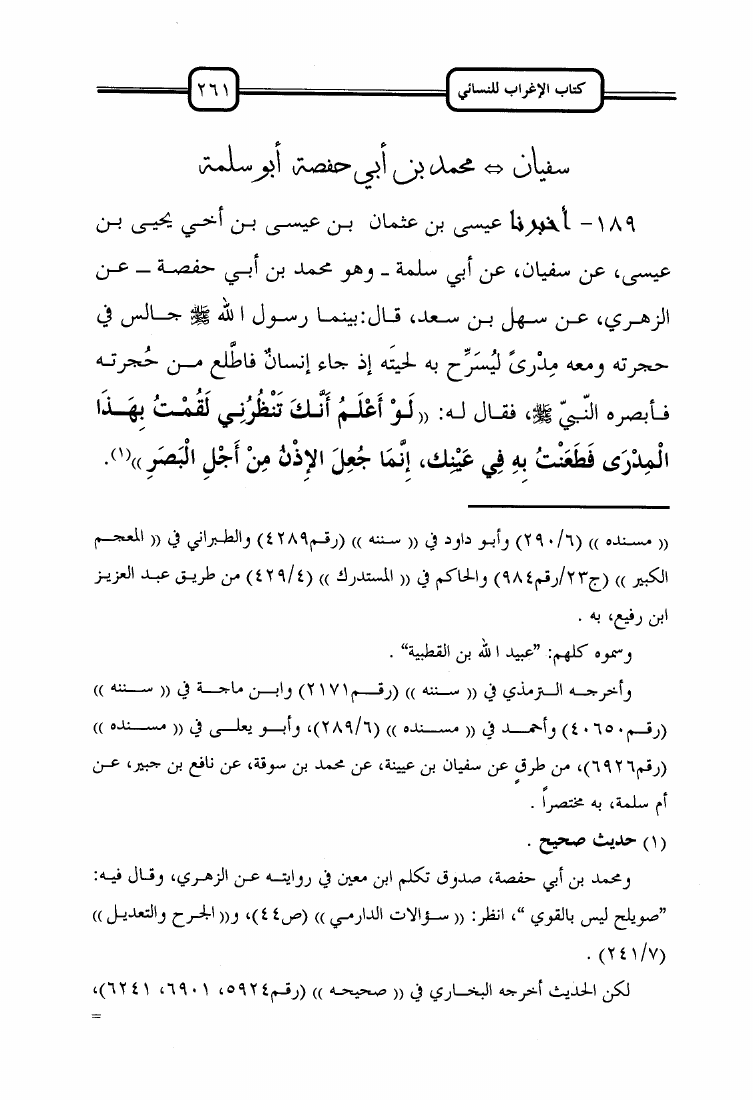 كتاب الإغراب للنسائي
٢٦١
سفيان ⇔ محمد بن أبي حفصة أبو سلمة
١٨٩- أخبرنا عيسى بن عثمان بن عيسى بن أخي يحيى بن
عيسى، عن سفيان، عن أبي سلمة - وهو محمد بن أبي حفصة - عن
الزهري، عن سهل بن سعد، قال: بينما رسول الله ﷺ جالس في
حجرته ومعه مِدْرىً ليُسَرِّح به لحيتَه إذ جاء إنسانٌ فاطَّلع من حُجرته
فأبصره النّبيّ ﷺ، فقال له: «لَوْ أَعْلَمُ أَنَّكَ تَنْظُرُنِي لَقُمْتُ بِهَذَا
الْمِدْرَى فَطَعَنْتُ بِهِ فِي عَيْنِكَ، إِنَّمَا جُعِلَ الإِذْنُ مِنْ أَجْلِ الْبَصَرِ»(١).
« مسنده » (٢٩٠/٦) وأبو داود في « سننه » (رقم٤٢٨٩) والطبراني في « المعجم
الكبير » (ج٢٣/رقم٩٨٤) والحاكم في « المستدرك » (٤٢٩/٤) من طريق عبد العزيز
ابن رفيع، به .
وسموه كلهم: ”عبيد الله بن القطبية“ .
وأخرجه الترمذي في « سننه » (رقم٢١٧١) وابن ماجة في « سننه »
(رقم٤٠٦٥) وأحمد في « مسنده » (٢٨٩/٦)، وأبو يعلى في « مسنده »
(رقم٦٩٢٦)، من طرقٍ عن سفيان بن عيينة، عن محمد بن سوقة، عن نافع بن جبير، عن
أم سلمة، به مختصراً .
(١) حديث صحيح .
ومحمد بن أبي حفصة، صدوق تكلم ابن معين في روايته عن الزهري، وقال فيه:
”صويلح ليس بالقوي “، انظر: « سؤالات الدارمي » (ص٤٤)، و« الجرح والتعديل »
(٢٤١/٧) .
لكن الحديث أخرجه البخاري في « صحيحه » (رقم٥٩٢٤، ٦٩٠١، ٦٢٤١)،
=